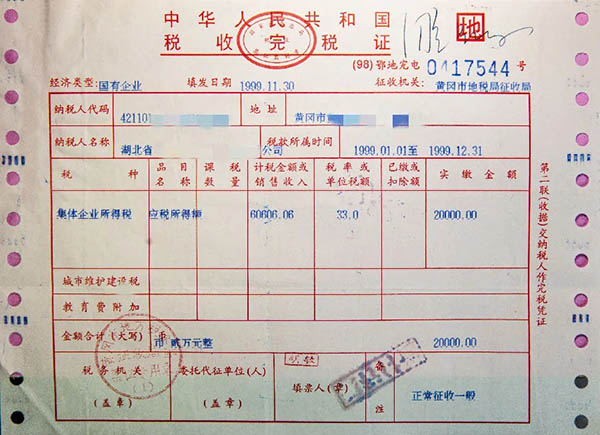 中华人民共和国
税收完税证
地
(98) 鄂地完电 0417544 号
经济类型: 国有企业 填发日期 1999.11.30 征收机关: 黄冈市地税局征收局
纳税人代码 421101 地址 黄冈市
纳税人名称 湖北省 公司 税款所属时间 1999.01.01至 1999.12.31
税种 品目名称 课税数量 计税金额或销售收入 税率或单位税额 已缴或扣除额 实缴金额
集体企业所得税 应税所得额 60606.06 33.0 20000.00
城市维护建设税
教育费附加
金额合计 (大写) 币 贰万元整 20000.00
税务机关 (盖章) 委托代征单位(人) (盖章) 填票人 (章) 备注 正常征收一般
第二联(收据)交纳税人作完税凭证